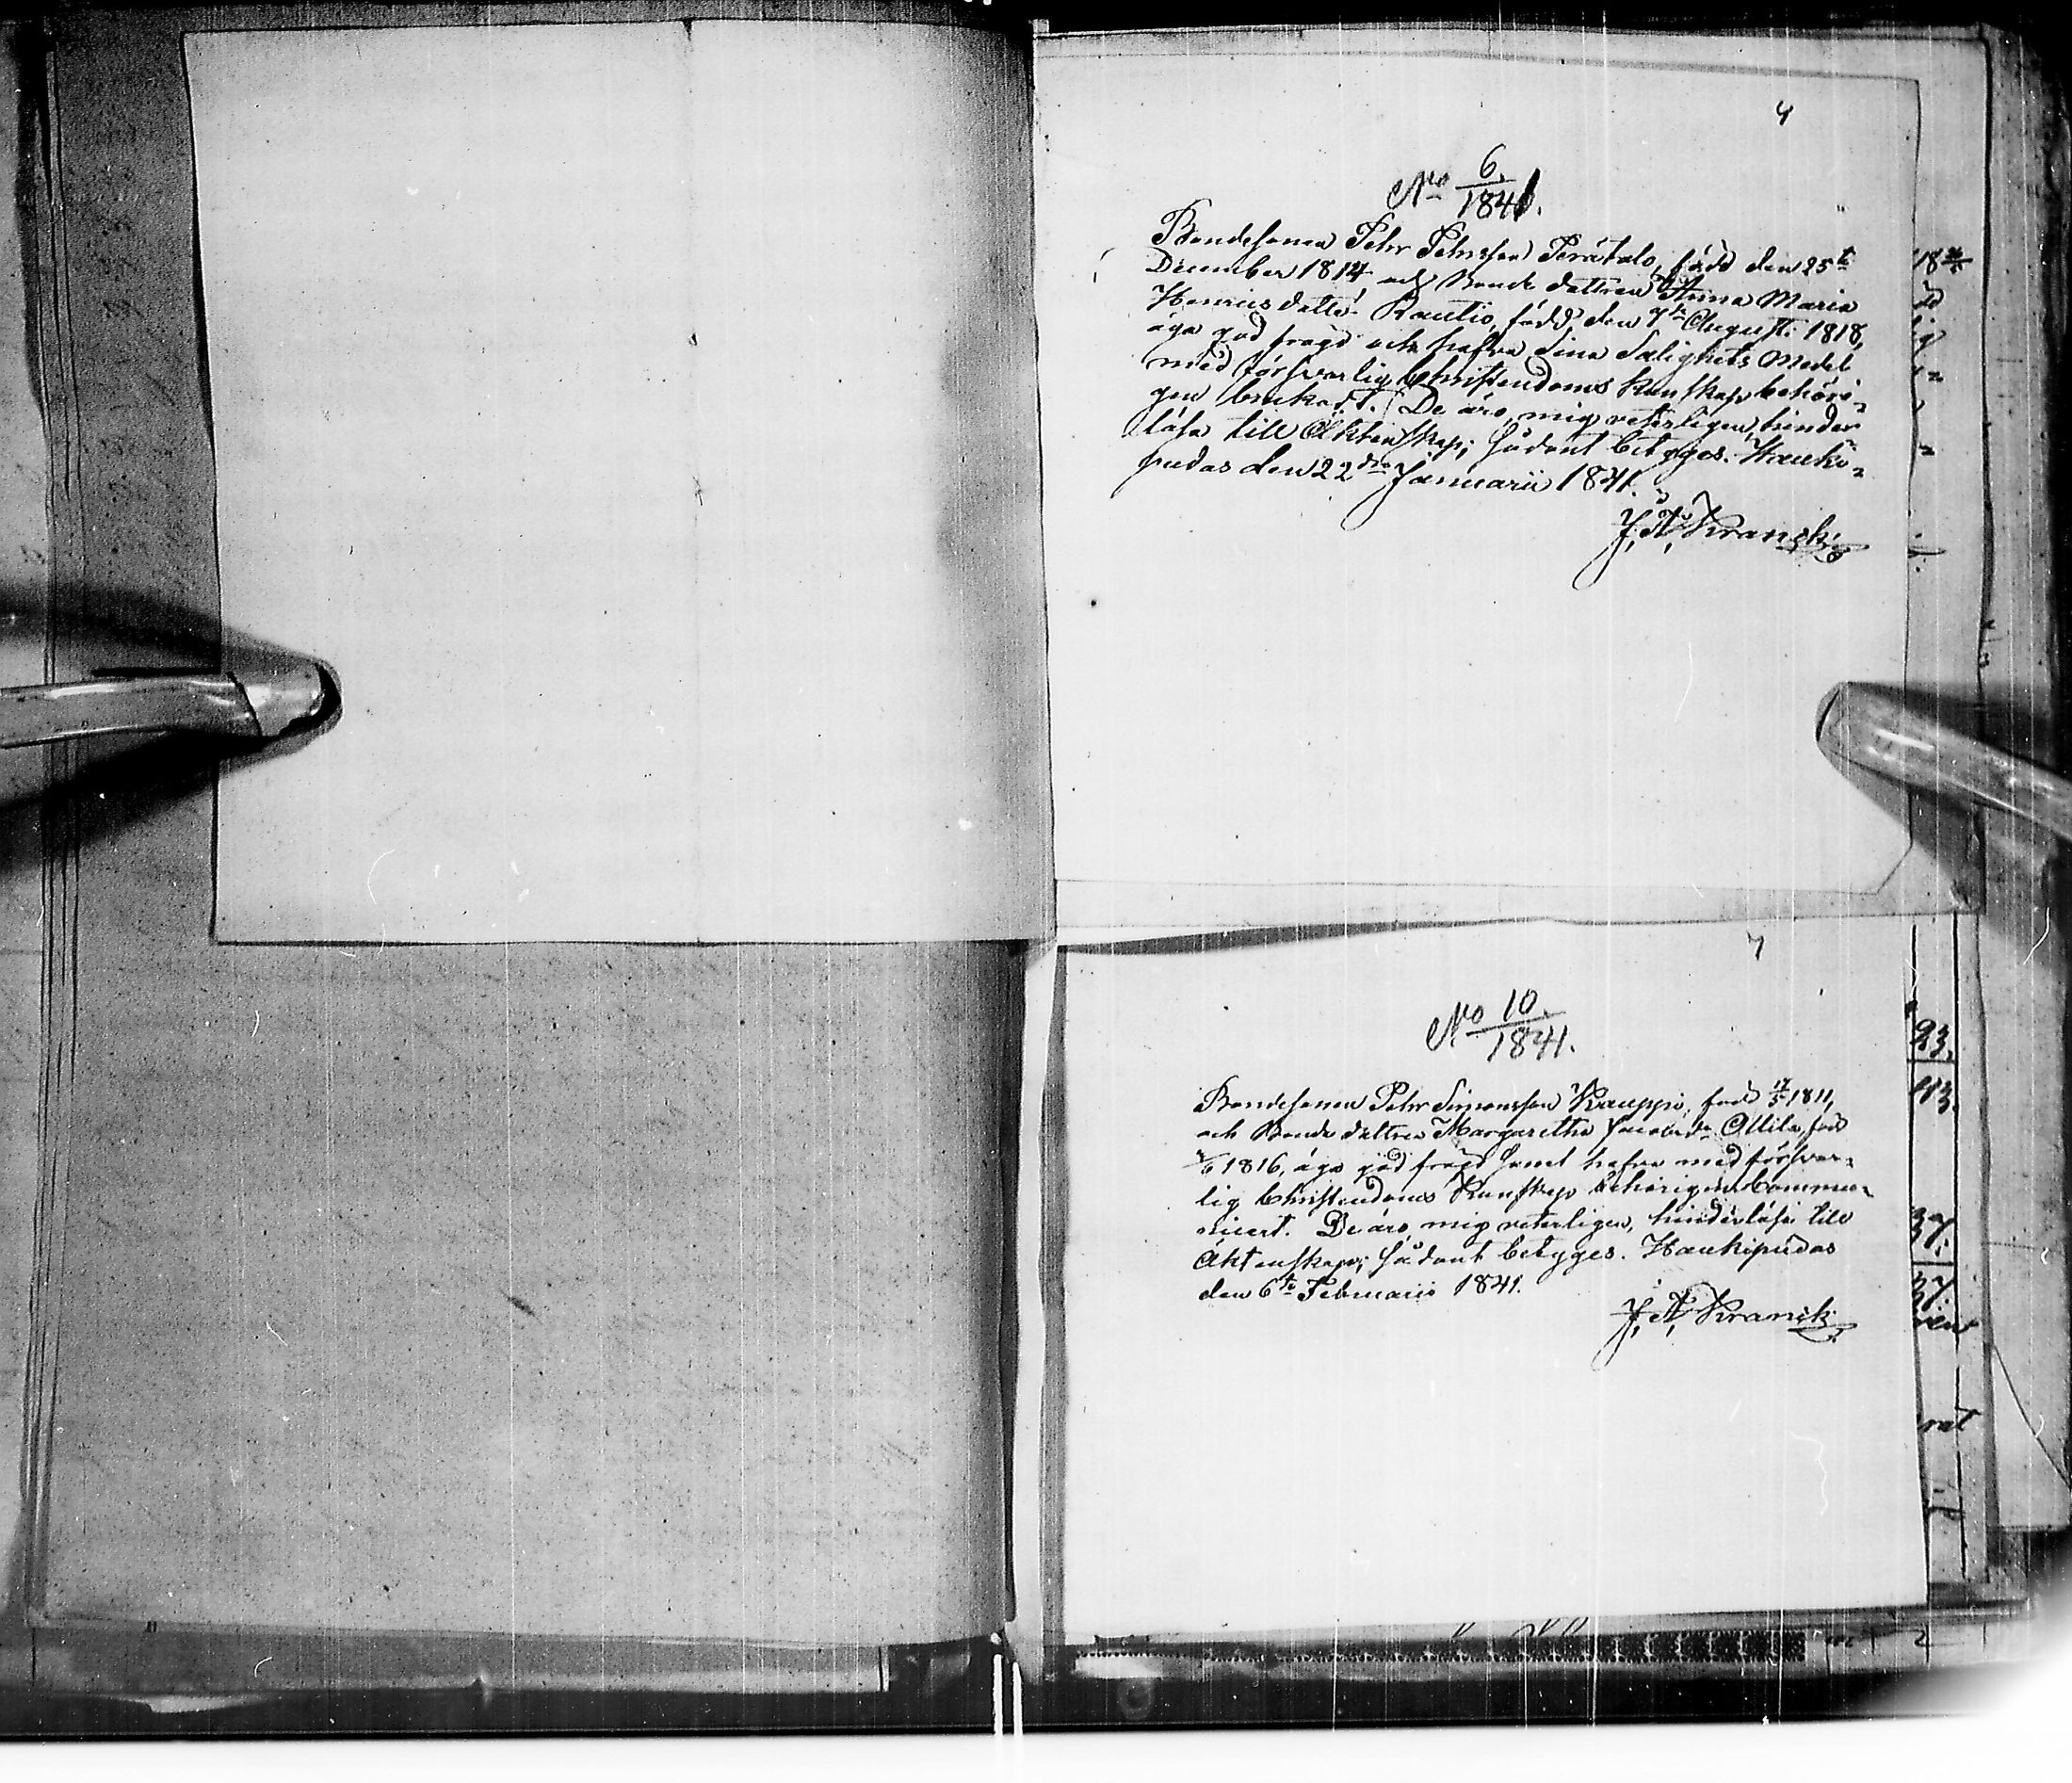 4
No 6./1841.
Bondesonen Pehr Pehrsson Perätalo, född den 25te
December 1814, och Bonde dottren Anna Maria
Henricsdotter Rautio, född den 7de Augusti 1818,
äga god frägd och hafva sina Salighets Medel
med försvarlig Christendoms kunskap behöri-
gen brukadt. De äro, mig veterligen, hinder
lösa till Äktenskap; sådant betyges. Hauki-
pudas den 22dra Januarii 1841.
J. A. Kranck
7
No 10./1841.
Bondesonen Pehr Simonsson Kauppi, född 17/5 1811,
och Bonde dottren Margaretha Attila, född
1816, äga god frägd samt hafva med försvar-
lig Christendoms Kunskap behörigen Commu-
nicert. De äro, mig veterligen, hinderlösa till
Äktenskap; sådant betyges. Haukipudas
den 6te Februarii 1841.
J. A. Kranck
23.
37.
37.